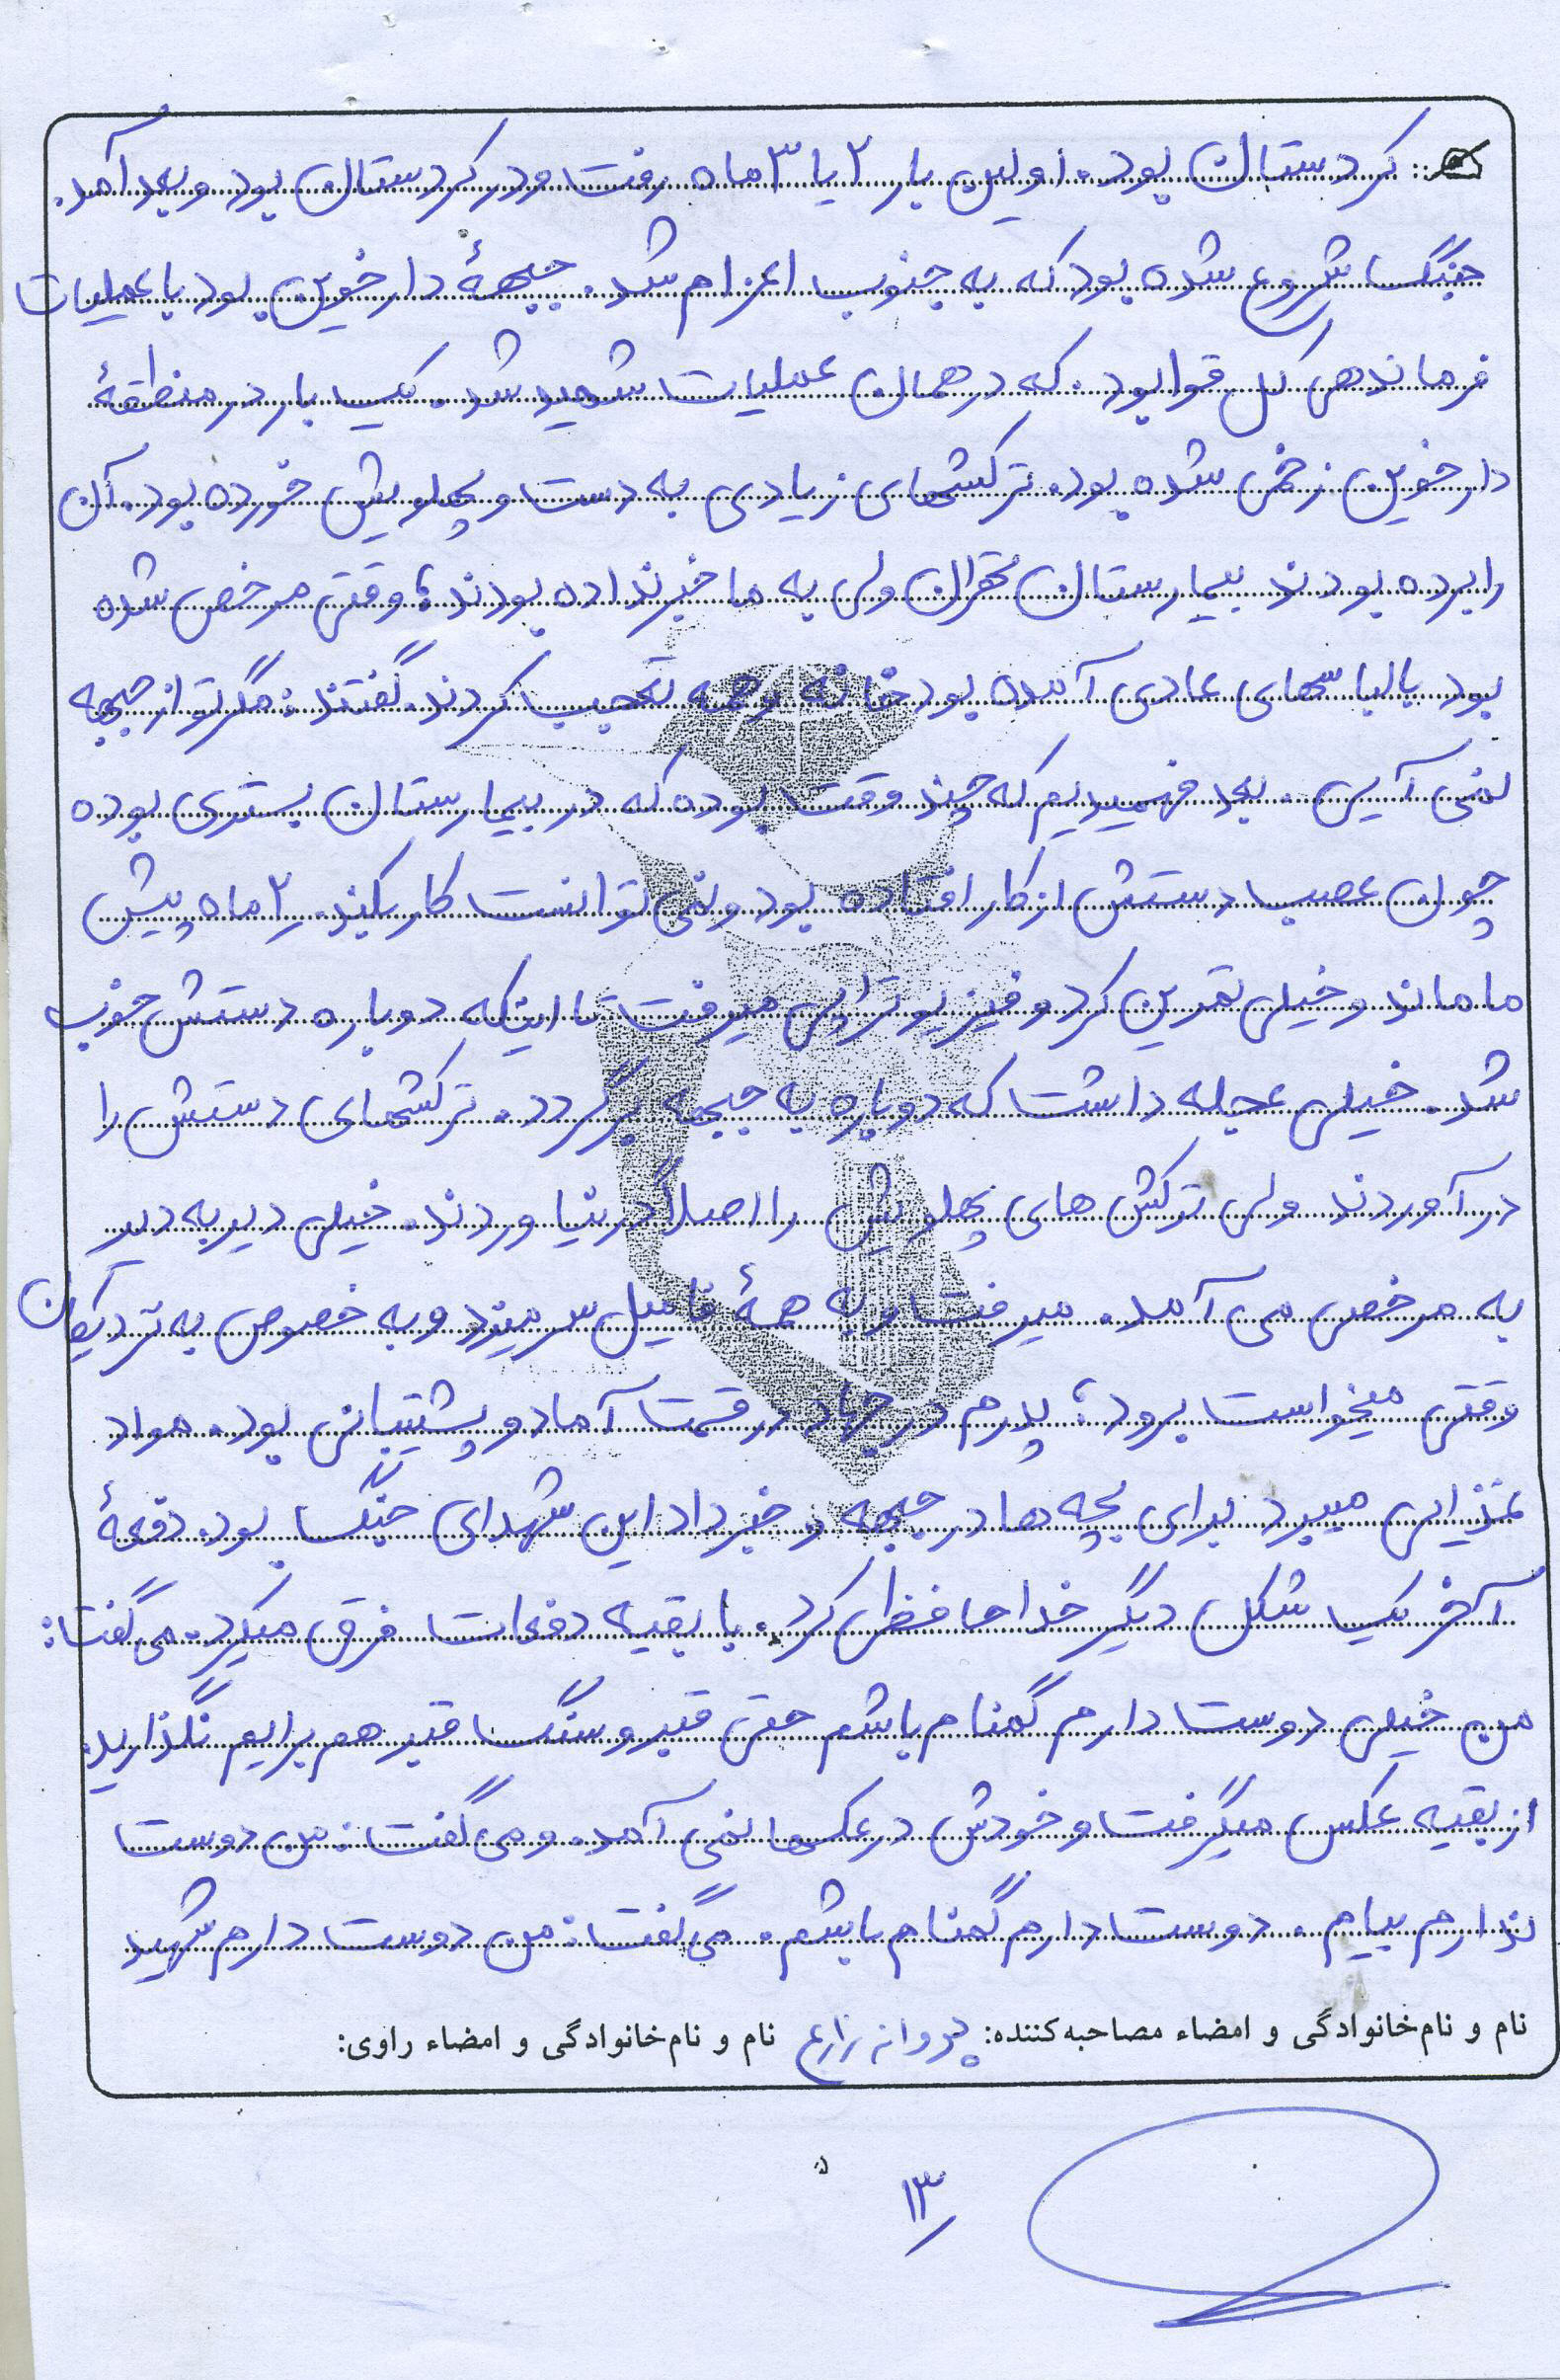 کردستان بود. اولین بار ۲ یا ۳ ماه رفت و در کردستان بود و بعد آمد.
جنگ شروع شده بود که به جنوب اعزام شد. جبههٔ دارخوین بود با عملیات
فرماندهی کل قوا بود. که در همان عملیات شهید شد. یک بار در منطقهٔ
دارخوین زخمی شده بود. ترکشهای زیادی به دست و پهلویش خورده بود. آن
را برده بودند بیمارستان تهران ولی به ما خبر نداده بودند؛ وقتی مرخص شده
بود با لباسهای عادی آمده بود خانه و همه تعجب کردند. گفتند: مگر تو از جبهه
نمی آیی. بعد فهمیدیم که چند وقت بوده که در بیمارستان بستری بوده
چون عصب دستش از کار افتاده بود و نمی توانست کار بکند. ۲ ماه پیش
ما ماند و خیلی تمرین کرد و فیزیوتراپی میرفت تا اینکه دوباره دستش خوب
شد. خیلی عجله داشت که دوباره به جبهه برگردد. ترکشهای دستش را
درآوردند ولی ترکش های پهلویش را اصلاً درنیاوردند. خیلی دیر به دیر
به مرخصی می آمد. میرفت و به همهٔ فامیل سر میزد و به خصوص به نزدیکان
وقتی میخواست برود؛ پدرم در جهاد در قسمت آماد و پشتیبانی بود. مواد
غذایی میبرد برای بچه ها در جبهه و خبر داد این شهدای جنگ بود. دفعهٔ
آخر یک شکل دیگر خداحافظی کرد. با بقیه دفعات فرق میکرد. می گفت:
من خیلی دوست دارم گمنام باشم حتی قبر و سنگ قبر هم برایم نگذارید.
از بقیه عکس میگرفت و خودش در عکسها نمی آمد. و می گفت: من دوست
ندارم بیایم. دوست دارم گمنام باشم. می گفت: من دوست دارم شهید
نام و نام‌خانوادگی و امضاء مصاحبه‌کننده: پروانه زارع نام و نام‌خانوادگی و امضاء راوی:
۱۳